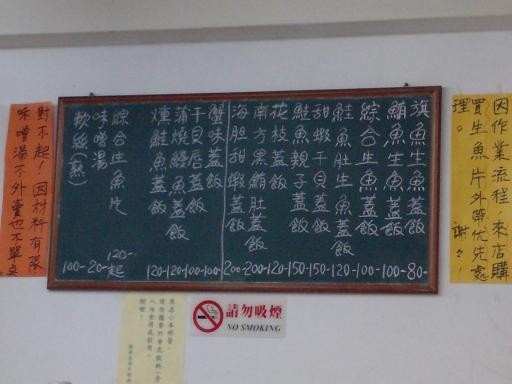 因作業流程,來店購
買生魚片外帶优先處
理。謝々!
旗魚生魚蓋飯 80-
鮪魚生魚蓋飯 100-
綜合生魚蓋飯 100-
鮭魚肚生魚蓋飯 120-
甜蝦干貝蓋飯 150-
鮭魚親子蓋飯 150-
花枝蓋飯 120-
南方黑鮪肚蓋飯 200-
海胆甜蝦蓋飯 200-
蟹味蓋飯 100-
干貝唇蓋飯 100-
蒲燒鰻魚蓋飯 120-
燻鮭魚蓋飯 120-
綜合生魚片 120-起
味噌湯 20-
軟絲(熟) 100-
對不起!因材料有限
味噌湯不外賣也不單点
請勿吸煙
NO SMOKING